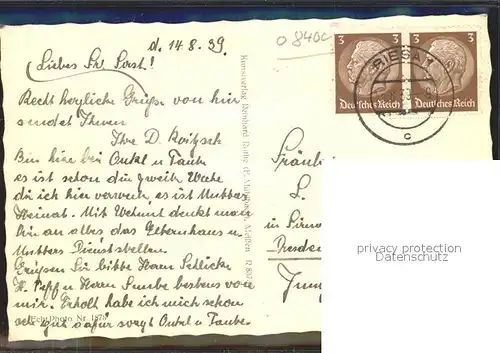 d. 14.8.39.
Liebes Frl. !
Recht herzliche Grüße von hier
sendet Ihnen
Ihre D.
Bin hier bei Onkel u Tante
es ist schon die zweite Woche
die ich hier verweile, es ist Mutters
Heimat. Mit Wehmut denkt man
hin an alles das Elternhaus u
Mutters Dienststellen.
Grüßen Sie bitte Herrn
H. u Herrn bestens von
mir. Erholt habe ich mich schon
sehr gut dafür sorgt Onkel u Tante.
Echt Photo Nr. 1876
Kunstverlag Meißen
0840C
3 3
Deutsches Reich Deutsches Reich
RIESA
c
Fräulein
L.
in Pirna
Dresden
privacy protection
Datenschutz